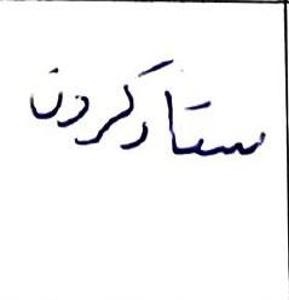 ستادکردن